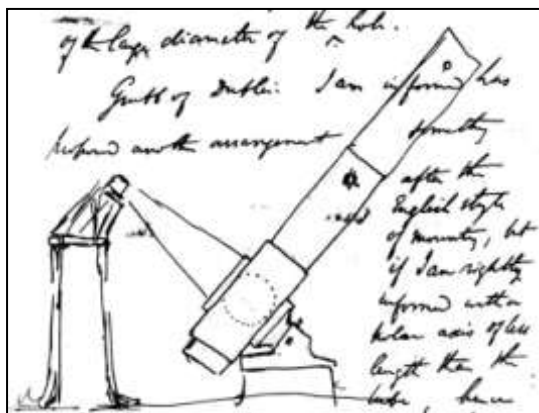 of the large diameter of the hole.
Grubb of Dublin I am informed has
proposed another arrangement something
after the
English style
of mounting, but
if I am rightly
informed with a
polar axis of less
length than the
tube, hence